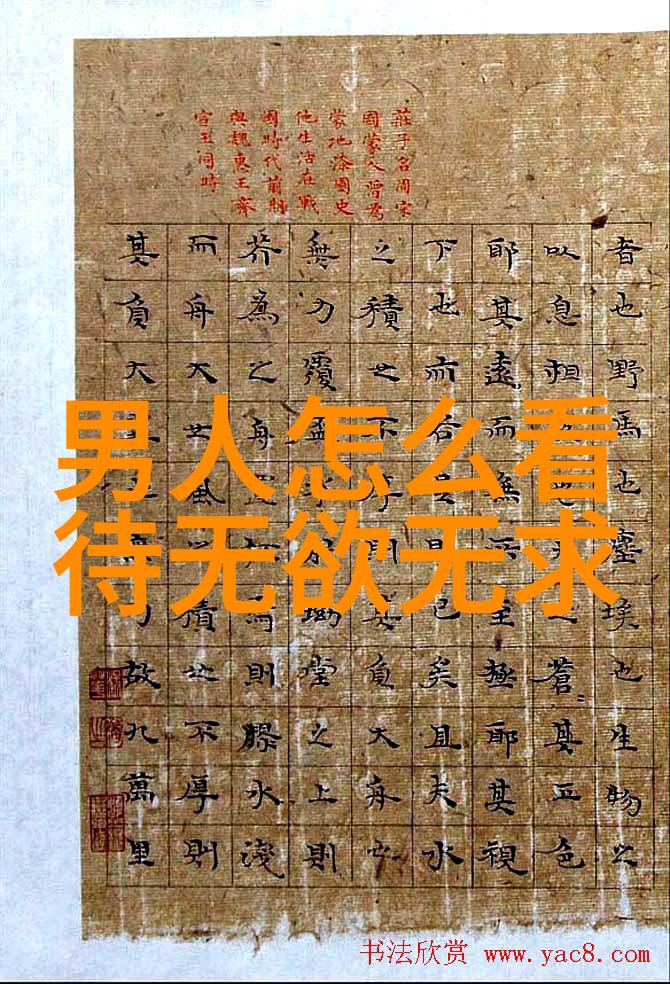 莊子名周宋
國蒙人曾為
蒙地漆園史
他生活在戰
國時代前期
與魏惠王齊
宣王同時
者也野馬也塵埃也生物之
以息相吹也天之蒼〻其正色
耶其遠而無所至極耶其視
下也亦若是則已矣且夫水
之積也不厚則其負大舟也
無力覆盃水於坳堂之上則
芥為之舟置杯焉則膠水淺
而舟大也風之積也不厚則
其負大翼也無力故九萬里
男人怎么看
待无欲无求
书法欣赏 www.yac8.com